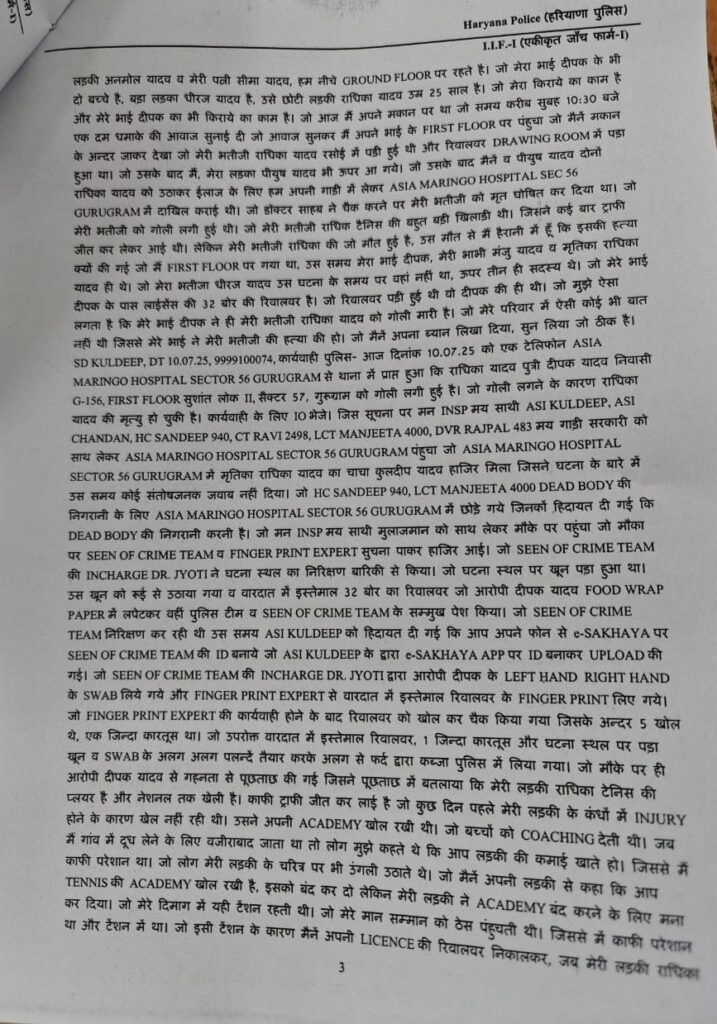 Haryana Police (हरियाणा पुलिस)
I.I.F.-I (एकीकृत जाँच फार्म-I)
लड़की अनमोल यादव व मेरी पत्नी सीमा यादव, हम नीचे GROUND FLOOR पर रहते है। जो मेरा भाई दीपक के भी
दो बच्चे है, बडा लड़का धीरज यादव है, उसे छोटी लड़की राधिका यादव उम्र 25 साल है। जो मेरा किराये का काम है
और मेरे भाई दीपक का भी किराये का काम है। जो आज मैं अपने मकान पर था जो समय करीब सुबह 10:30 बजे
एक दम धमाके की आवाज सुनाई दी जो आवाज सुनकर मैं अपने भाई के FIRST FLOOR पर पंहुचा जो मैनें मकान
के अन्दर जाकर देखा जो मेरी भतीजी राधिका यादव रसोई में पडी हुई थी और रिवालवर DRAWING ROOM में पडा
हुआ था। जो उसके बाद मैं, मेरा लड़का पीयुष यादव भी ऊपर आ गये। जो उसके बाद मैनें व पीयुष यादव दोनों
राधिका यादव को उठाकर ईलाज के लिए हम अपनी गाडी में लेकर ASIA MARINGO HOSPITAL SEC 56
GURUGRAM में दाखिल कराई थी। जो डॉक्टर साहब ने चैक करने पर मेरी भतीजी को मृत घोषित कर दिया था। जो
मेरी भतीजी को गोली लगी हुई थी। जो मेरी भतीजी राधिक टैनिस की बहुत बडी खिलाडी थी। जिसने कई बार ट्राफी
जीत कर लेकर आई थी। लेकिन मेरी भतीजी राधिका की जो मौत हुई है, उस मौत से मैं हैरानी में हूँ कि इसकी हत्या
क्यों की गई जो मैं FIRST FLOOR पर गया था, उस समय मेरा भाई दीपक, मेरी भाभी मंजु यादव व मृतिका राधिका
यादव ही थे। जो मेरा भतीजा धीरज यादव उस घटना के समय पर वहां नहीं था, ऊपर तीन ही सदस्य थे। जो मेरे भाई
दीपक के पास लाईसेंस की 32 बोर की रिवालवर है। जो रिवालवर पडी हुई थी वो दीपक की ही थी। जो मुझे ऐसा
लगता है कि मेरे भाई दीपक ने ही मेरी भतीजी राधिका यादव को गोली मारी है। जो मेरे परिवार में ऐसी कोई भी बात
नहीं थी जिससे मेरे भाई ने मेरी भतीजी की हत्या की हो। जो मैनें अपना ब्यान लिखा दिया, सुन लिया जो ठीक है।
SD KULDEEP, DT 10.07.25, 9999100074, कार्यवाही पुलिस- आज दिनांक 10.07.25 को एक टेलिफोन ASIA
MARINGO HOSPITAL SECTOR 56 GURUGRAM से थाना में प्राप्त हुआ कि राधिका यादव पुत्री दीपक यादव निवासी
G-156, FIRST FLOOR सुशांत लोक II, सैक्टर 57, गुरूग्राम को गोली लगी हुई है। जो गोली लगने के कारण राधिका
यादव की मृत्यु हो चुकी है। कार्यवाही के लिए IO भेजे। जिस सूचना पर मन INSP मय साथी ASI KULDEEP, ASI
CHANDAN, HC SANDEEP 940, CT RAVI 2498, LCT MANJEETA 4000, DVR RAJPAL 483 मय गाड़ी सरकारी को
साथ लेकर ASIA MARINGO HOSPITAL SECTOR 56 GURUGRAM पंहुचा जो ASIA MARINGO HOSPITAL
SECTOR 56 GURUGRAM में मृतिका राधिका यादव का चाचा कुलदीप यादव हाजिर मिला जिसने घटना के बारे में
उस समय कोई संतोषजनक जवाब नहीं दिया। जो HC SANDEEP 940, LCT MANJEETA 4000 DEAD BODY की
निगरानी के लिए ASIA MARINGO HOSPITAL SECTOR 56 GURUGRAM में छोड़े गये जिनकों हिदायत दी गई कि
DEAD BODY की निगरानी करनी है। जो मन INSP मय साथी मुलाजमान को साथ लेकर मौके पर पहुंचा जो मौका
पर SEEN OF CRIME TEAM व FINGER PRINT EXPERT सुचना पाकर हाजिर आई। जो SEEN OF CRIME TEAM
की INCHARGE DR. JYOTI ने घटना स्थल का निरिक्षण बारिकी से किया। जो घटना स्थल पर खून पडा हुआ था।
उस खून को रूई से उठाया गया व वारदात में इस्तेमाल 32 बोर का रिवालवर जो आरोपी दीपक यादव FOOD WRAP
PAPER में लपेटकर वहीं पुलिस टीम व SEEN OF CRIME TEAM के सम्मुख पेश किया। जो SEEN OF CRIME
TEAM निरिक्षण कर रही थी उस समय ASI KULDEEP को हिदायत दी गई कि आप अपने फोन से e-SAKHAYA पर
SEEN OF CRIME TEAM की ID बनाये जो ASI KULDEEP के द्वारा e-SAKHAYA APP पर ID बनाकर UPLOAD की
गई। जो SEEN OF CRIME TEAM की INCHARGE DR. JYOTI द्वारा आरोपी दीपक के LEFT HAND RIGHT HAND
के SWAB लिये गये और FINGER PRINT EXPERT से वारदात में इस्तेमाल रिवालवर के FINGER PRINT लिए गये।
जो FINGER PRINT EXPERT की कार्यवाही होने के बाद रिवालवर को खोल कर चैक किया गया जिसके अन्दर 5 खोल
थे, एक जिन्दा कारतूस था। जो उपरोक्त वारदात में इस्तेमाल रिवालवर, 1 जिन्दा कारतूस और घटना स्थल पर पड़ा
खून व SWAB के अलग अलग पलन्दें तैयार करके अलग से फर्द द्वारा कब्जा पुलिस में लिया गया। जो मौके पर ही
आरोपी दीपक यादव से गहनता से पूछताछ की गई जिसने पूछताछ में बतलाया कि मेरी लड़की राधिका टेनिस की
प्लयर है और नेशनल तक खेली है। काफी ट्राफी जीत कर लाई है जो कुछ दिन पहले मेरी लड़की के कंधों में INJURY
होने के कारण खेल नहीं रही थी। उसने अपनी ACADEMY खोल रखी थी। जो बच्चों को COACHING देती थी। जब
मैं गांव में दूध लेने के लिए वजीराबाद जाता था तो लोग मुझे कहते थे कि आप लड़की की कमाई खाते हो। जिससे मैं
काफी परेशान था। जो लोग मेरी लड़की के चरित्र पर भी उंगली उठाते थे। जो मैनें अपनी लड़की से कहा कि आप
TENNIS की ACADEMY खोल रखी है, इसको बंद कर दो लेकिन मेरी लड़की ने ACADEMY बंद करने के लिए मना
कर दिया। जो मेरे दिमाग में यही टैंशन रहती थी। जो मेरे मान सम्मान को ठेस पंहुचती थी। जिससे में काफी परेशान
था और टैंशन में था। जो इसी टैंशन के कारण मैनें अपनी LICENCE की रिवालवर निकालकर, जब मेरी लड़की राधिका
3